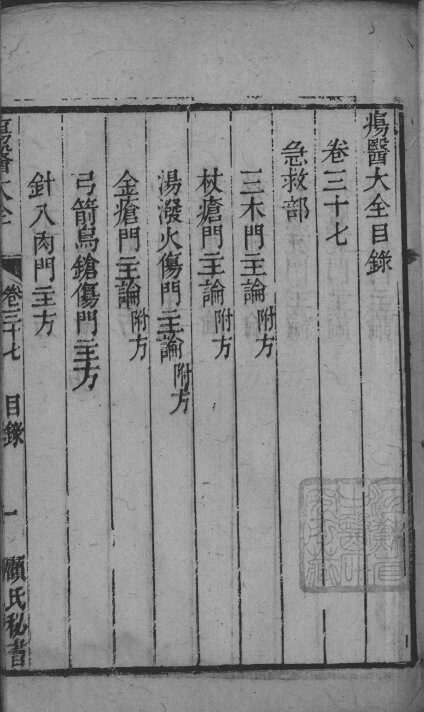 瘍醫大全目錄
卷三十七
急救部
三木門主論附方
杖瘡門主論附方
湯潑火傷門主論附方
金瘡門主論附方
弓箭鳥鎗傷門主方
針入肉門主方
瘍醫大全 卷三十七 目錄 一 顧氏秘書